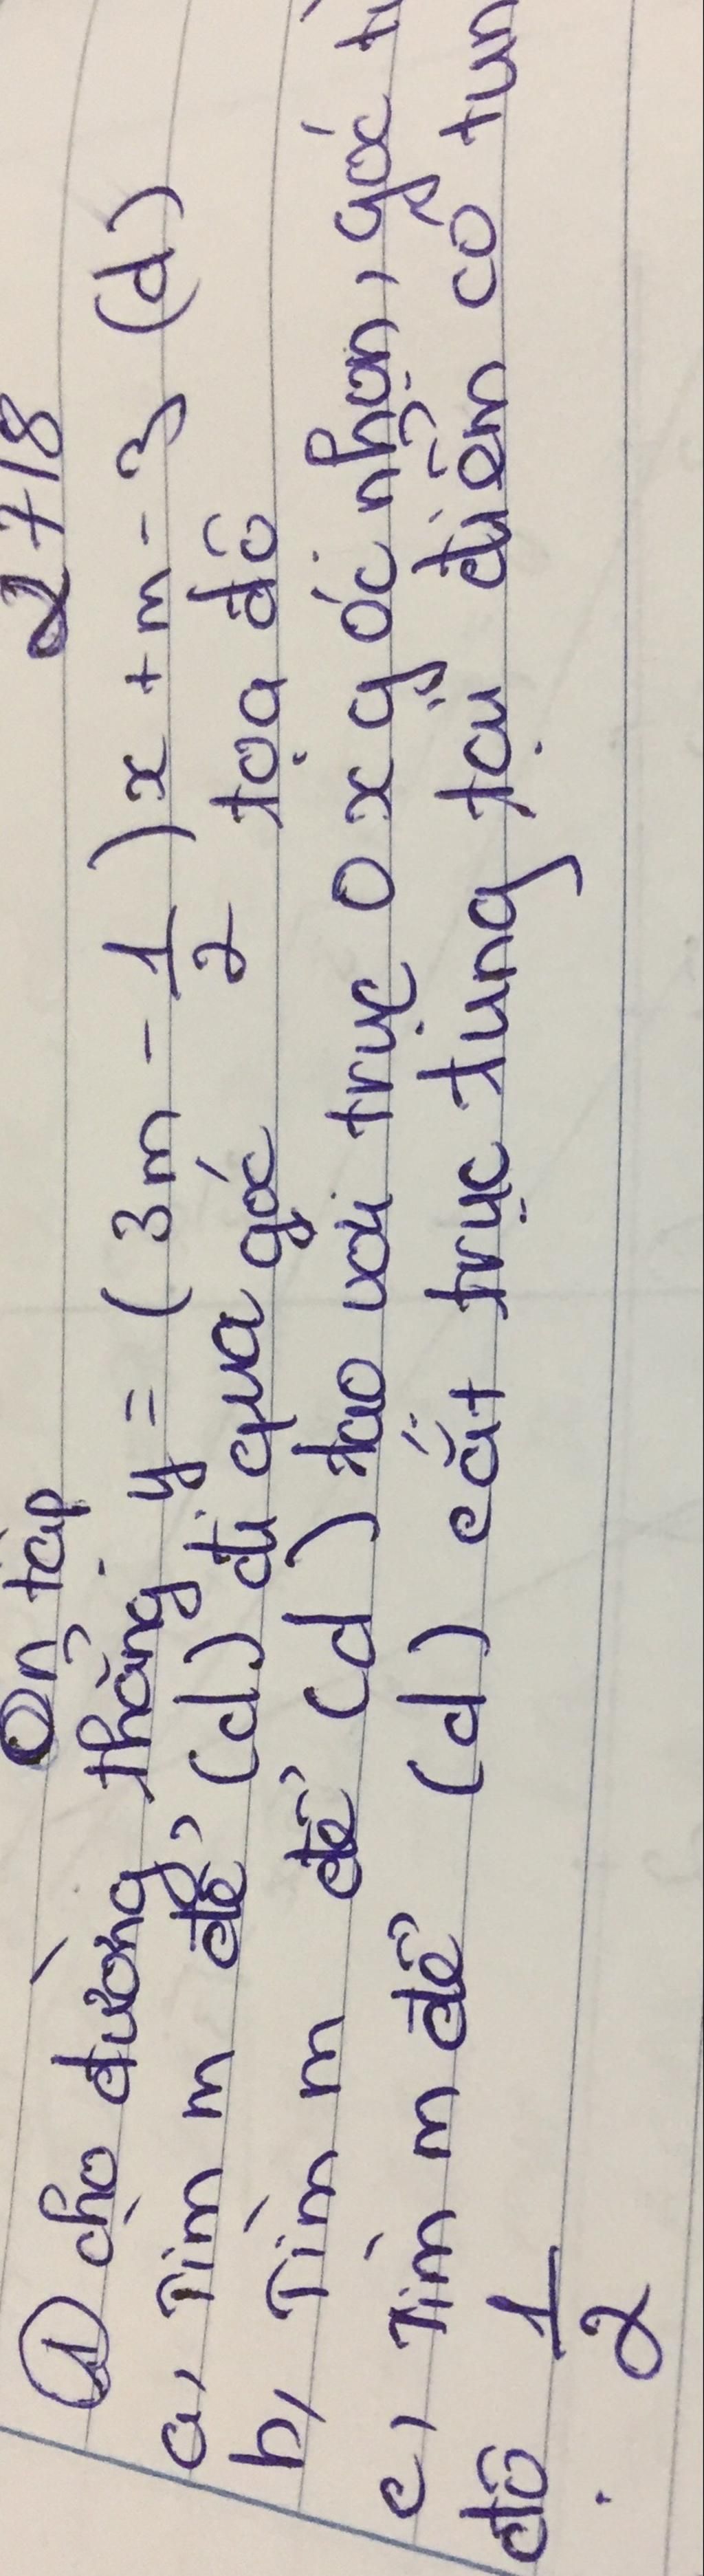 Ôn tập 27/8
① Cho đường thẳng y = (3m - 1/2)x + m - 3 (d)
a, Tìm m để (d) đi qua gốc tọa độ
b, Tìm m để (d) tạo với trục Ox góc nhọn, góc
c, Tìm m để (d) cắt trục tung tại điểm có
độ 1/2